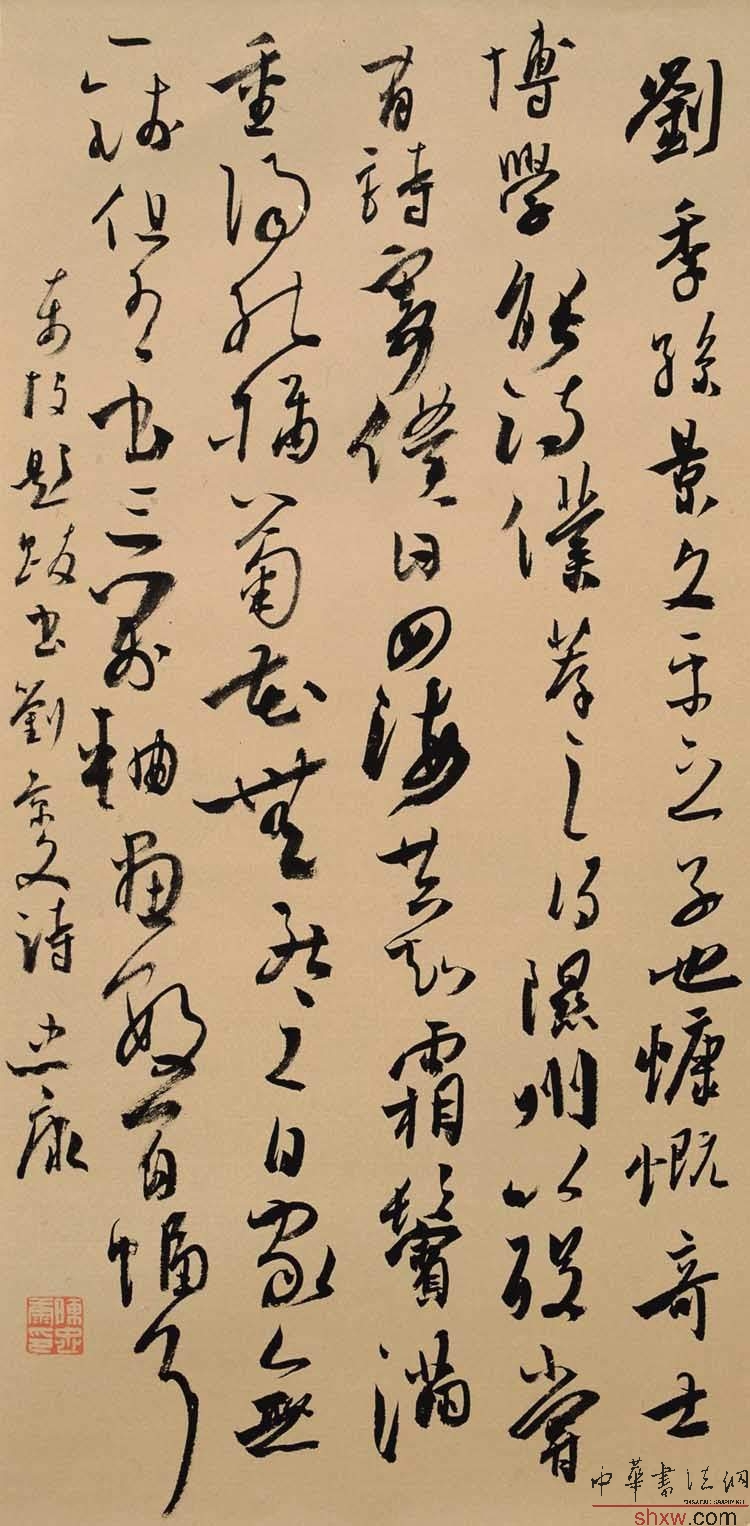 劉季孫景文平之子也慷慨奇士
博學能詩僕薦之得隰州以歿嘗
有詩寄僕曰四海共知霜鬢滿
重陽能插菊花無死之日家無
一錢但有書三萬軸畫數百幅耳
東坡題跋書劉景文詩 忠康
陳忠康印
中華書法網
shxw.com